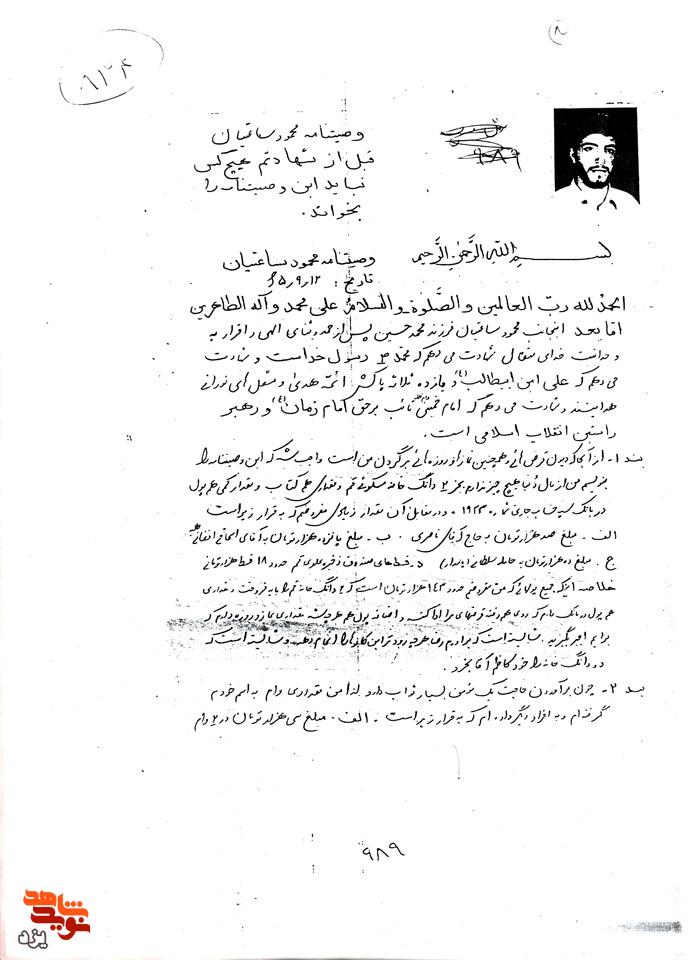 ۸
۸۱۲۴
وصیتنامه محمود ساعتیان
قبل از شهادتم هیچ کس
نباید این وصیتنامه را
بخواند.
۹۸۹
بسم الله الرحمن الرحیم
وصیتنامه محمود ساعتیان
تاریخ: ۶۵٫۹٫۱۲
الحمد لله رب العالمین و الصلوة و السلام علی محمد و آله الطاهرین
اما بعد اینجانب محمود ساعتیان فرزند محمد حسین پس از حمد و ثنای الهی و اقرار به
وحدانیت خدای متعال شهادت می دهم که محمد ص رسول خداست و شهادت
می دهم که علی ابن ابیطالب (ع) و یازده پاکش ائمه هدی و مشعل های نورانی
هدایتند و شهادت می دهم که امام خمینی نائب برحق امام زمان (ع) و رهبر
راستین انقلاب اسلامی است.
بند ۱- از آنجا که دیون قرض هائی و همچنین نماز و روزه هائی برگردن من است واجب شد که این وصیتنامه را
بنویسم من از مال دنیا هیچ چیز ندارم بجز ۲ دانگ خانه مسکونی قم و مقداری هم کتاب و مقدار کمی هم پول
در بانک سپه حساب جاری شماره ۱۹۲۳ - و در مقابل آن مقدار زیادی مقروضم که به قرار زیر است
الف - مبلغ صد هزار تومان به حاج آقای ناصری . ب - مبلغ پانزده هزار تومان به آقای
ج - مبلغ ده هزار تومان به د - قسط های صندوق ذخیره علوی قم حدود ۱۸ قسط هزار تومانی
خلاصه اینکه جمیع پولی که من مقروضم حدود ۱۴۳ هزار تومان است که ۲ دانگ خانه قم را به فروخت و مقداری
هم پول در بانک دارم که روی هم رفته قرضهای مرا ادا کنند و اضافه پول هم هر چه شد مقداری نماز و روزه دارم که
برایم اجیر بگیرید . شایسته است که برادرم رضا هر چه زودتر این کارها را انجام دهد و شایسته است که
دو دانگ خانه را خود کاظم آقا بخرد.
بند ۲- چون برآوردن حاجت یک مومن بسیار ثواب دارد لذا من مقداری وام به اسم خودم
گرفته ام و به افراد دیگر داده ام که به قرار زیر است - الف - مبلغ سی هزار تومان در ۲ وام
۹۸۹
نوید شاهد
یزد